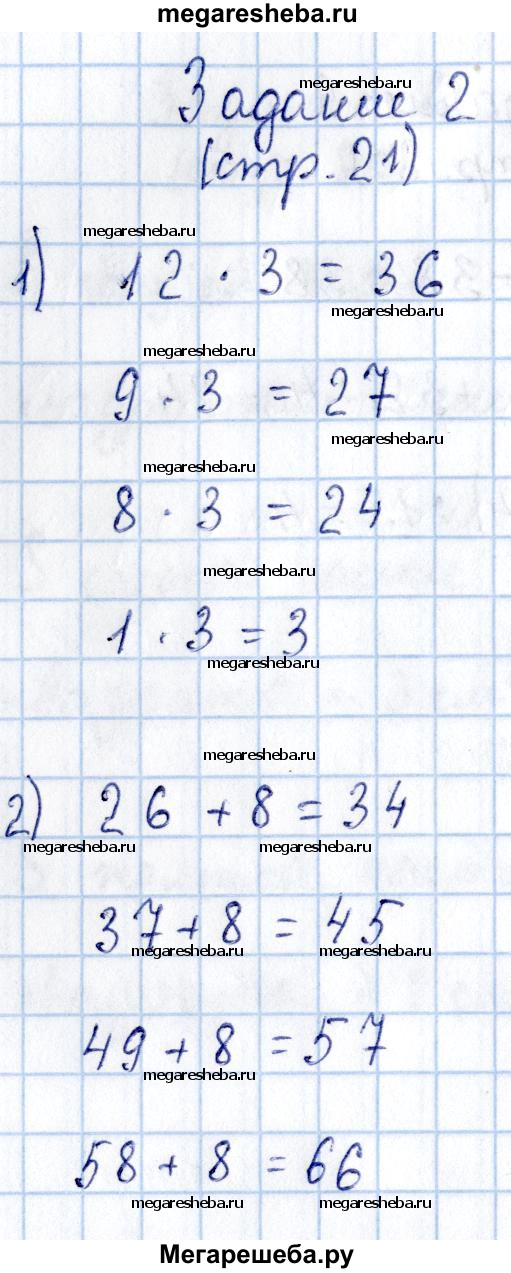 megaresheba.ru
megaresheba.ru
Задание 2
(стр. 21)
megaresheba.ru
1) 12 · 3 = 36
megaresheba.ru
megaresheba.ru
9 · 3 = 27
megaresheba.ru
megaresheba.ru
8 · 3 = 24
megaresheba.ru
1 · 3 = 3
megaresheba.ru
megaresheba.ru
2) 26 + 8 = 34
megaresheba.ru megaresheba.ru
37 + 8 = 45
megaresheba.ru megaresheba.ru
49 + 8 = 57
megaresheba.ru
58 + 8 = 66
megaresheba.ru megaresheba.ru
Мегарешеба.ру